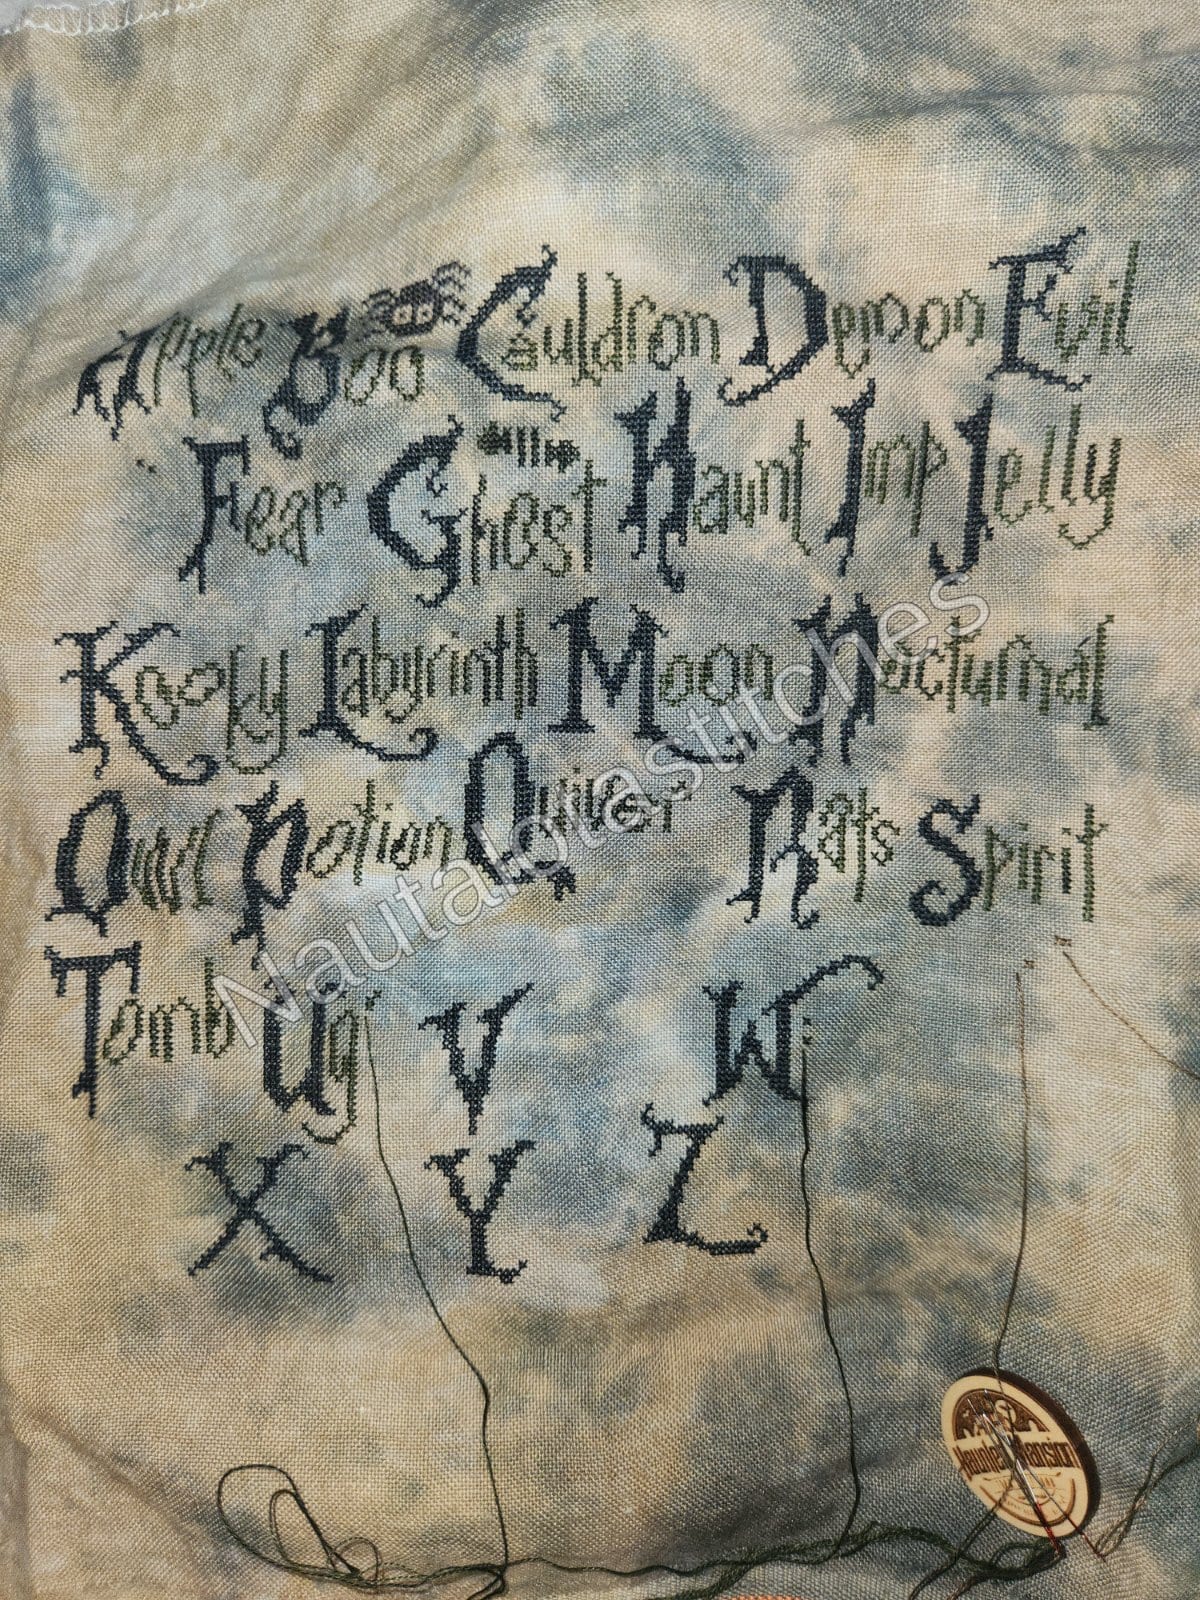 Apple Boo Cauldron Demon Evil
Fear Ghost Haunt Imp Jelly
Kooky Labyrinth Moon Nocturnal
Owl Potion Quiver Rats Spirit
Tomb Ug V W
X Y Z
Nautalotastitches
Haunted Mansion